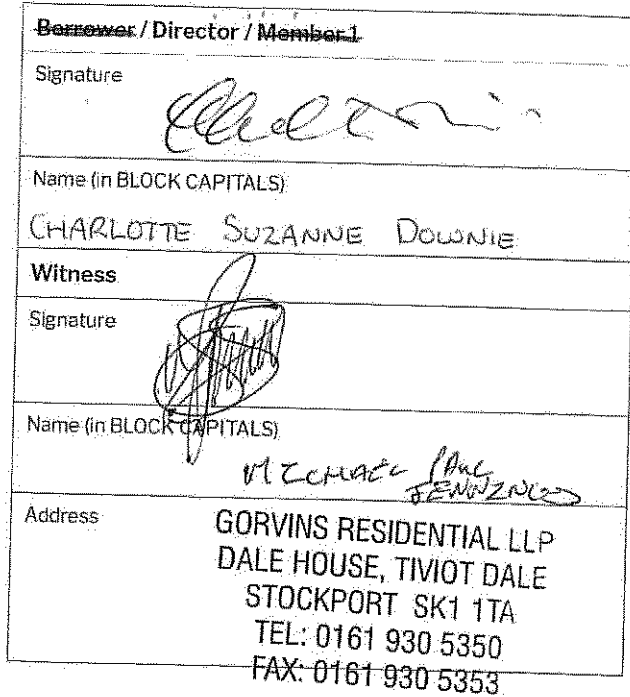 Borrower / Director / Member 1
Signature
Name (in BLOCK CAPITALS)
CHARLOTTE SUZANNE DOWNIE
Witness
Signature
Name (in BLOCK CAPITALS)
MICHAEL PAUL
JENNINGS
Address
GORVINS RESIDENTIAL LLP
DALE HOUSE, TIVIOT DALE
STOCKPORT SK1 1TA
TEL: 0161 930 5350
FAX: 0161 930 5353